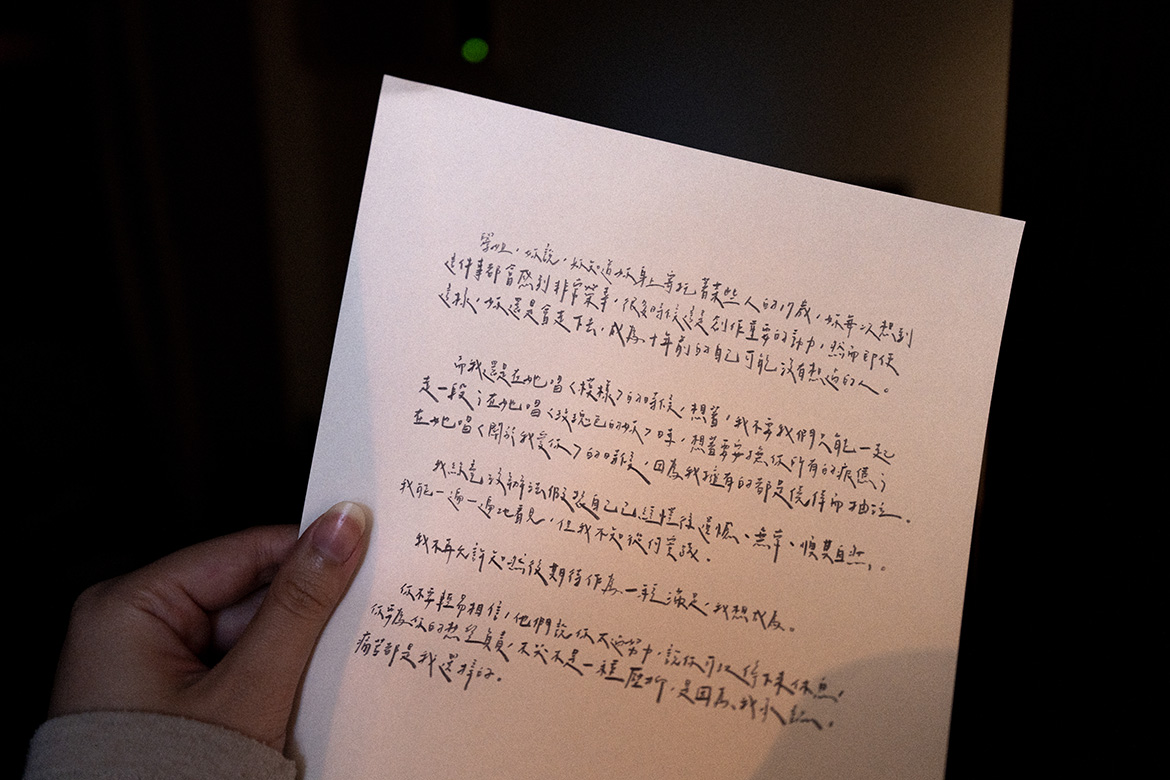 學姐，妳說，妳知道妳身上寄託著某些人的17歲，妳每次想到
這件事都會感到非常榮幸，很多時候這是創作重要的動力，然而即使
這樣，妳還是會走下去，成為十年前的自己可能沒有想過的人。
而我還是在她唱〈模樣〉的時候，想著，我不要我們只能一起
走一段；在她唱〈玫瑰色的妳〉時，想著要安撫你所有的疲憊；
在她唱〈關於我愛你〉的時候，因為我擁有的都是僥倖而抽泣。
我總是沒辦法假裝自己已經懂後遺憾、無常、順其自然，。
我能一遍一遍地看見，但我不知從何實踐。
我不再允許知曉後期待作為一種滿足，我想成為。
你不要輕易相信，他們說你不過努力，說你可以停下來休息，
你要為你的想望負責，不哭不是一種壓抑，是因為、我承認。
痛苦都是我選擇的。